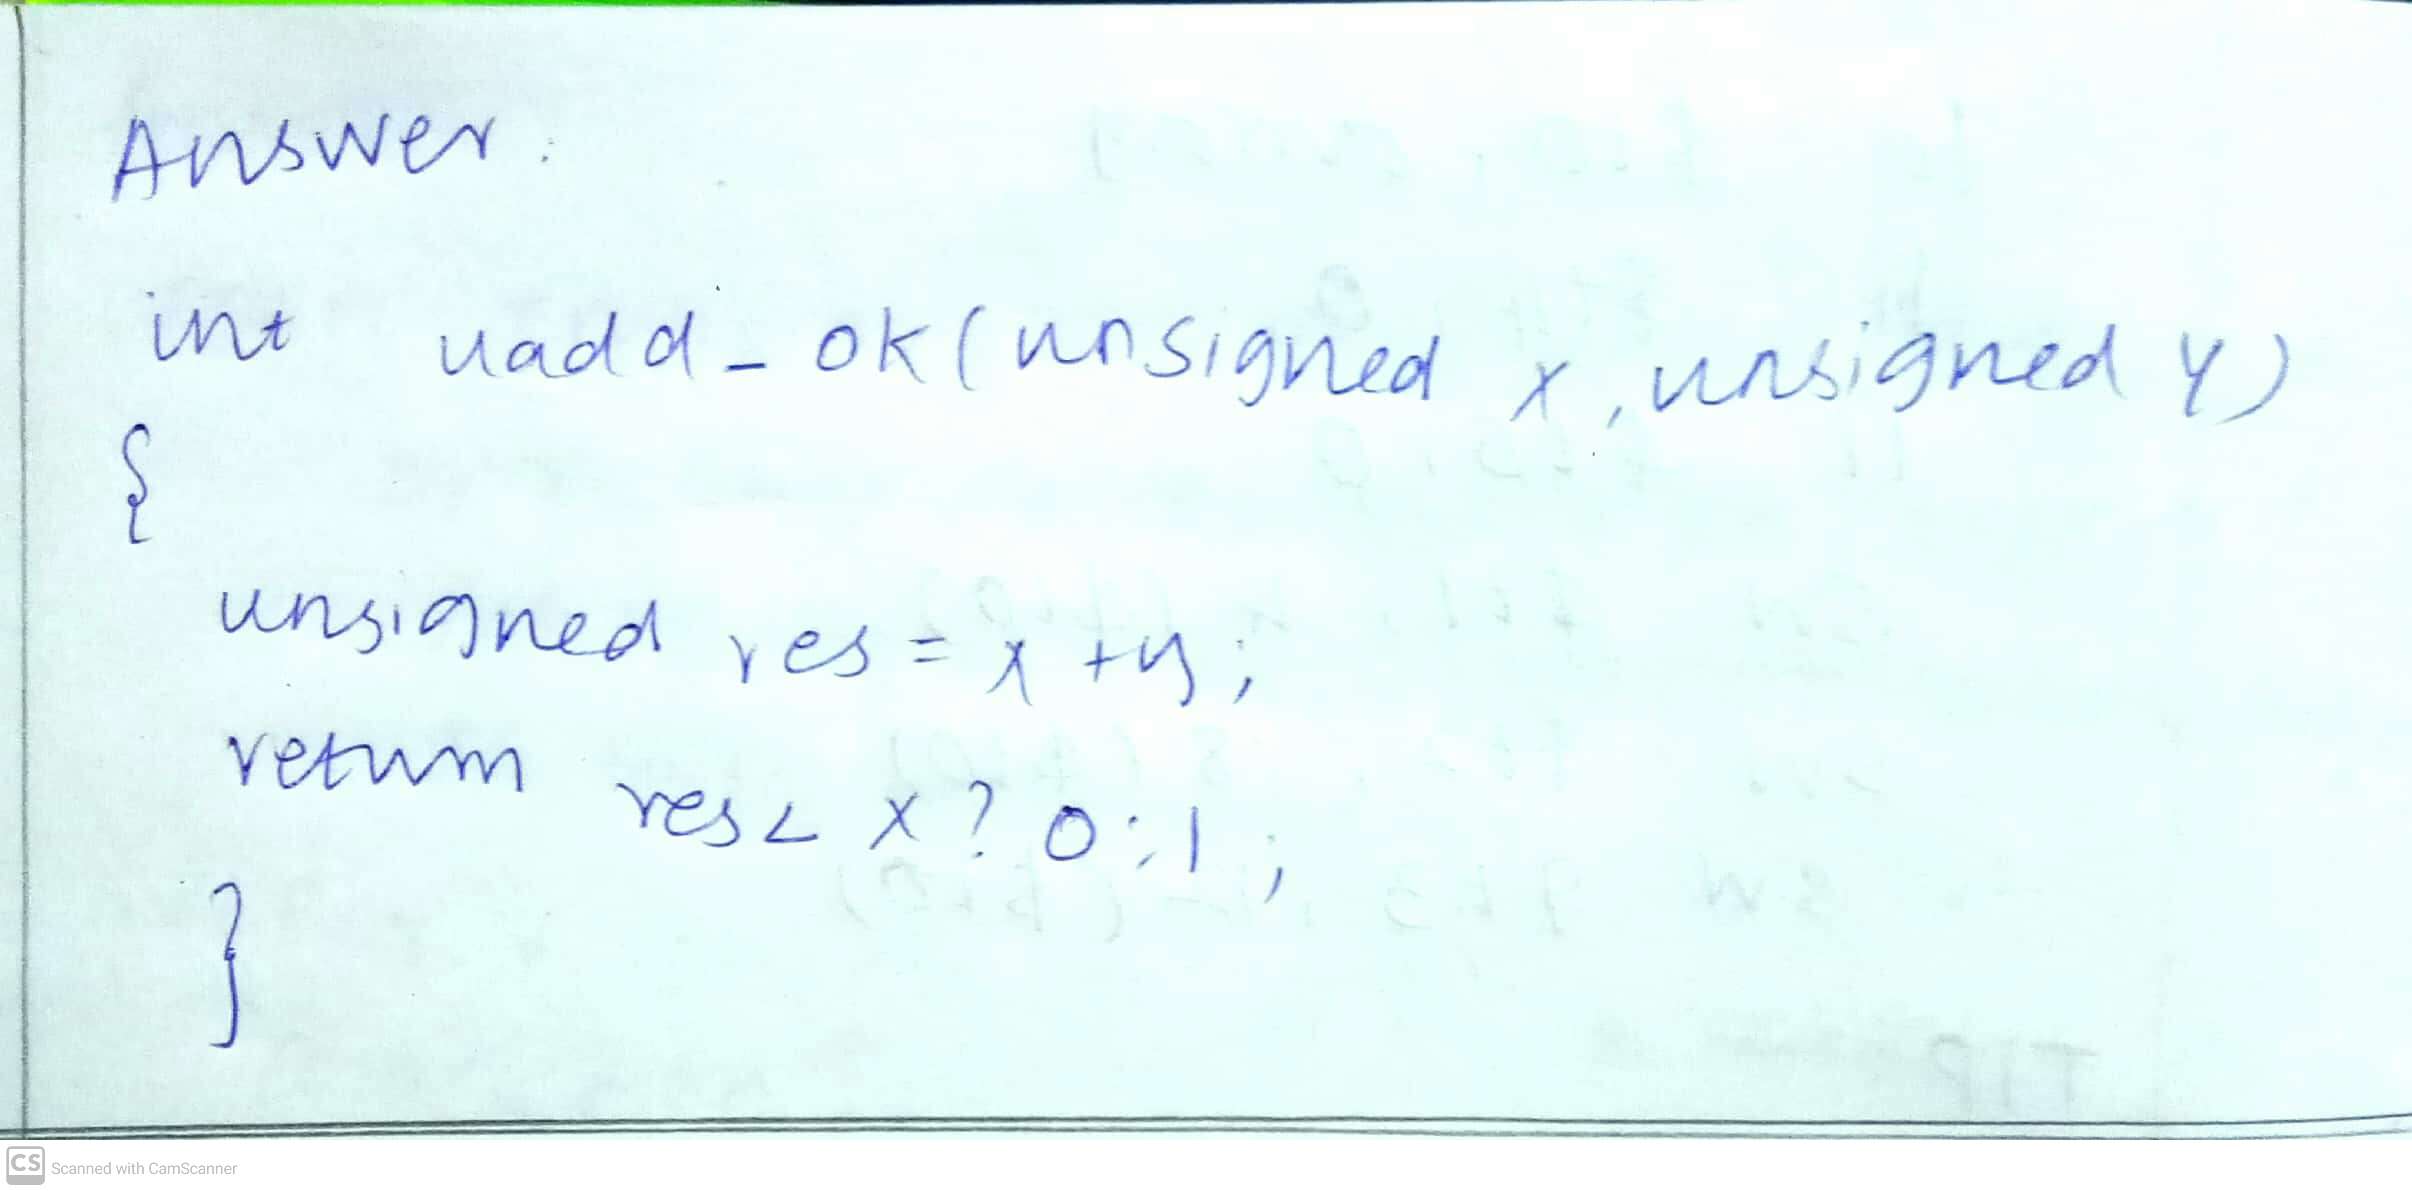 Answer:
int uadd_ok(unsigned x, unsigned y)
{
unsigned res = x + y;
return res < x ? 0 : 1;
}
CS Scanned with CamScanner